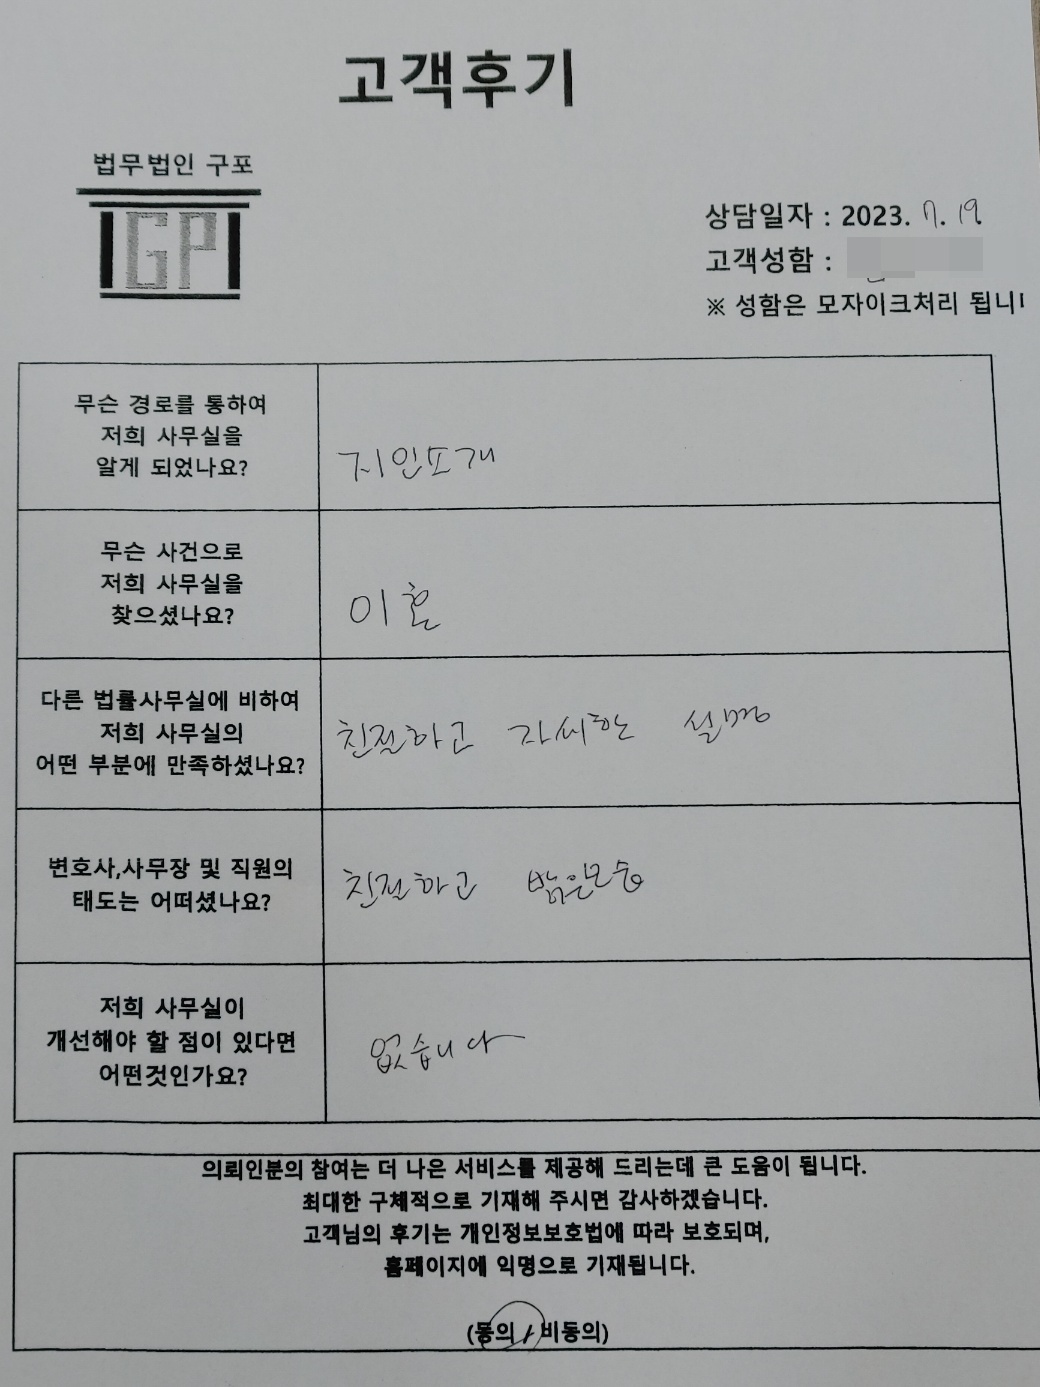 고객후기
법무법인 구포
GP
상담일자 : 2023. 7. 19.
고객성함 :
※ 성함은 모자이크처리 됩니
무슨 경로를 통하여
저희 사무실을
알게 되었나요?
지인소개
무슨 사건으로
저희 사무실을
찾으셨나요?
이혼
다른 법률사무실에 비하여
저희 사무실의
어떤 부분에 만족하셨나요?
친절하고 자세한 설명
변호사,사무장 및 직원의
태도는 어떠셨나요?
친절하고 밝은모습
저희 사무실이
개선해야 할 점이 있다면
어떤것인가요?
없습니다
의뢰인분의 참여는 더 나은 서비스를 제공해 드리는데 큰 도움이 됩니다.
최대한 구체적으로 기재해 주시면 감사하겠습니다.
고객님의 후기는 개인정보보호법에 따라 보호되며,
홈페이지에 익명으로 기재됩니다.
(동의 / 비동의)